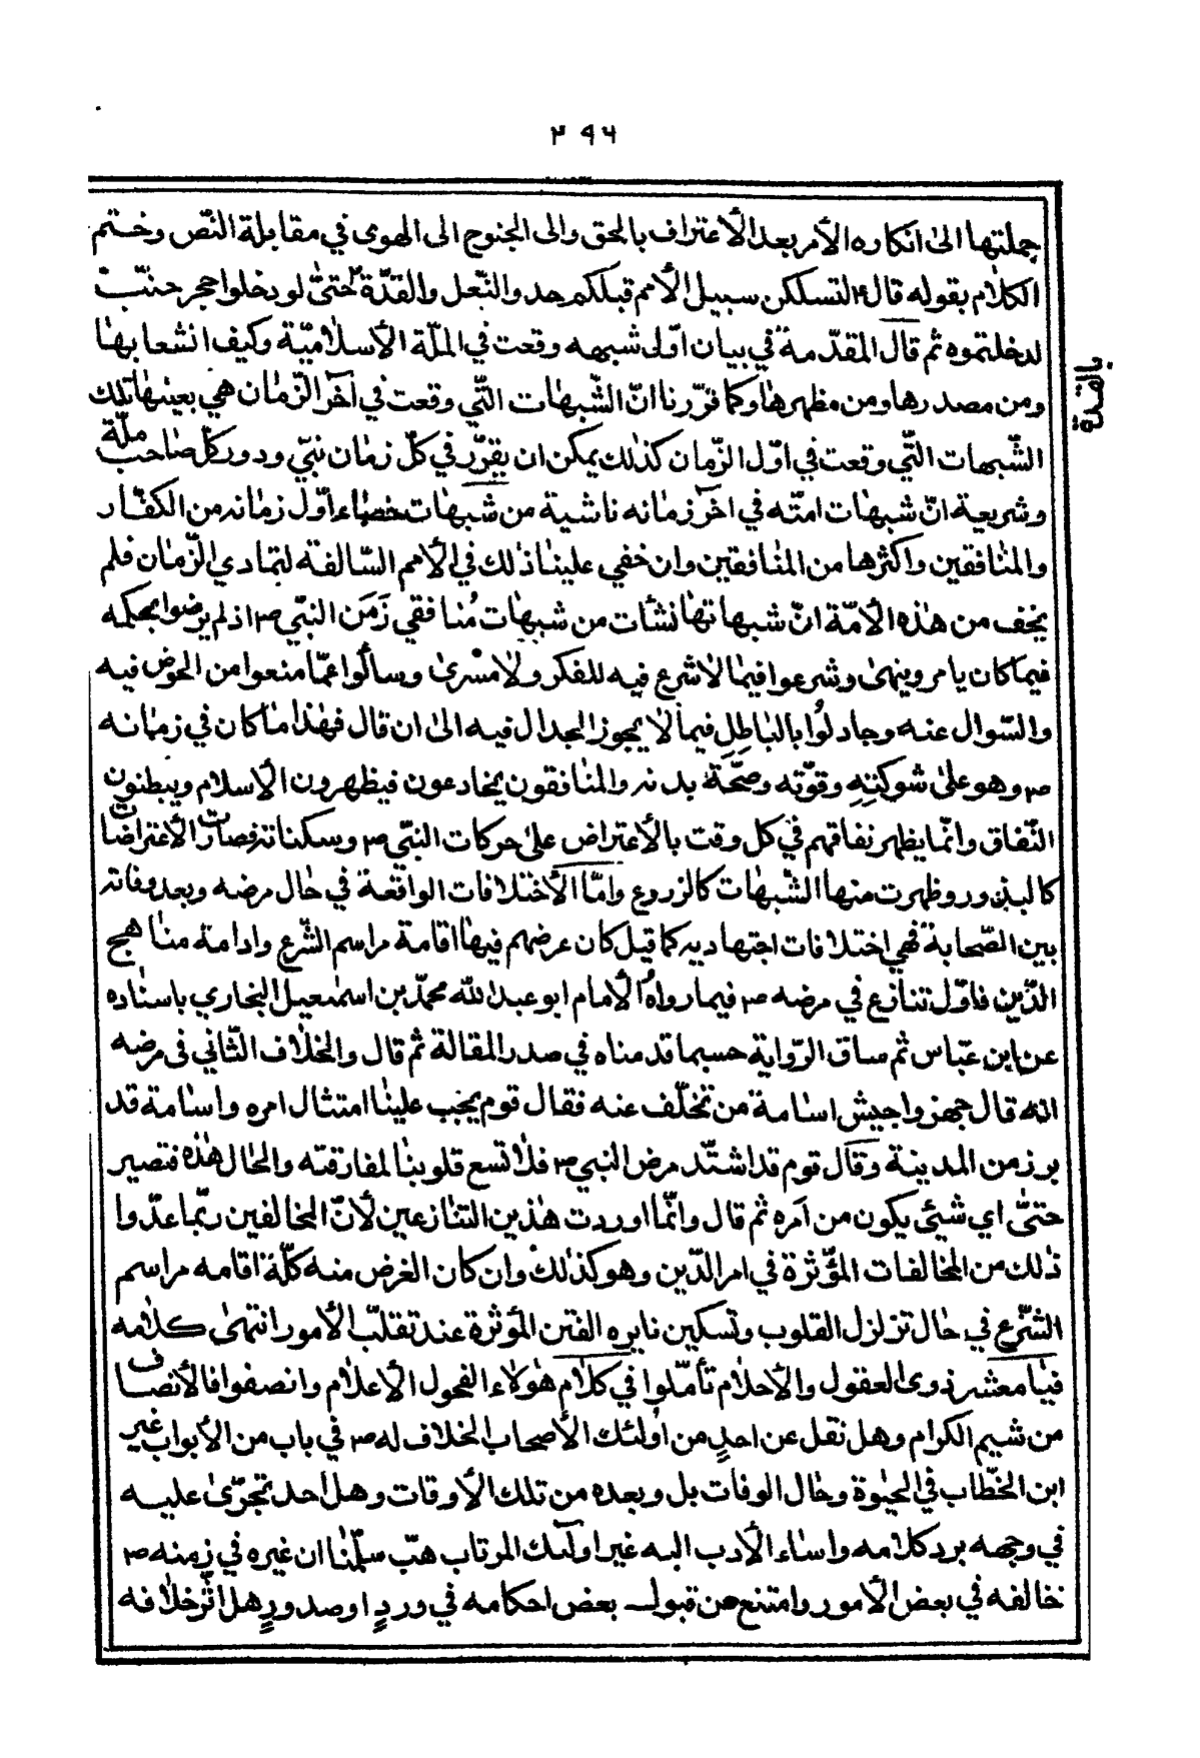 ٢٩٦
جملتها الىٰ انكاره الأمر بعد الأعتراف بالحق والى الجنوح الى الهوى في مقابلة النّص وختم
الكلام بقوله قال ع لتسلكن سبيل الأمم قبلكم حذو النّعل والقذّة حتىّٰ لو دخلوا جحر ضبّ
لدخلتموه ثم قال المقدّمة في بيان اوّل شبهه وقعت في الملّة الأسلاميّة وكيف انشعابها
بالقذة
ومن مصدرها ومن مظهرها وكما قرّرنا انّ الشّبهات التّي وقعت في آخر الزّمان هي بعينها تلك
الشّبهات التّي وقعت في اوّل الزّمان كذلك يمكن ان يقرّر في كلّ زمان نبيّ ودور كلّ صاحب ملّة
وشريعة انّ شبهات امتّه في اخر زمانه ناشية من شبهات خصماء اوّل زمانه من الكفّار
والمنافقين واكثرها من المنافقين وان خفي علينا ذلك في الأمم السّالفة لتمادي الزّمان فلم
يخف من هذه الأمّة انّ شبهاتها نشأت من شبهات مُنافقي زَمَن النبّي ص اذ لم يرضوا بحكمه
فيما كان يامر وينهىٰ وشرعوا فيما لا شرع فيه للفكر ولا مسرىٰ وسألُوا عمّا منعوا من الخوض فيه
والسّوال عنه وجادلُوا بالباطِلِ فيما لا يجوز الجدال فيه الىٰ ان قال فهٰذا ما كان في زمانه
ص وهو علىٰ شوكته وقوّته وصحّة بدنه والمنافقون يخادعون فيظهرون الأسلام ويبطنون
النّفاق وانّما يظهر نفاقهم في كل وقت بالأعتراض علىٰ حركات النبّي ص وسكناته فصارت الأعتراضات
كالبذور وظهرت منها الشّبهات كالزروع وامّا الأختلافات الواقعة في حال مرضه وبعد وفاته
بين الصّحابة فهي اختلافات اجتهاديه كما قيل كان غرضهم فيها اقامة مراسم الشّرع وادامة مناهج
الدّين فاوّل تنازع في مرضه ص فيما رواهُ الأمام ابو عبد اللّه محمّد بن اسمٰعيل البخاري باسناده
عن ابن عبّاس ثم ساق الرّواية حسبما قدمناه في صدر المقالة ثم قال والخلاف الثّاني فى مرضه
انه قال جهزوا جيش اسامة من تخلّف عنه فقال قوم يجب علينا امتثال امره واسامة قد
برز من المدينة وقال قوم قد اشتّد مرض النبي ص فلا تسع قلوبنا لمفارقته والحال هٰذه فنصبر
حتىّٰ اي شيئ يكون من آمره ثم قال وانّما اوردت هذين التنازعين لأنّ المخالفين ربّما عدّوا
ذٰلك من المخالفات المؤّثرة في امر الدّين وهو كذلك وان كان الغرض منه كلّه اقامه مراسم
الشّرع في حال تزلزل القلوب وتسكين نايره الفتن المؤثرة عند تقلبّ الأمور انتهىٰ كلامه
فيا معشر ذوى العقول والأحلام تأمّلوا في كلام هٰولاء الفحول الأعلام وانصفوا فالأنصاف
من شيم الكرام وهل نقل عن احدٍ من اُولئك الأصحاب الخلاف له ص في باب من الأبواب غير
ابن الخطّاب في الحيٰوة وحال الوفات بل وبعده من تلك الأوقات وهل احد تجرّىٰ عليه
في وجهه برد كلامه واساء الأدب اليه غير اولٓئك المرتاب هبّ سلّمنا ان غيره في زمنه ص
خالفه في بعض الأمور وامتنع من قبول بعض احكامه في وردٍ او صدورٍ هل اثّر خلافه